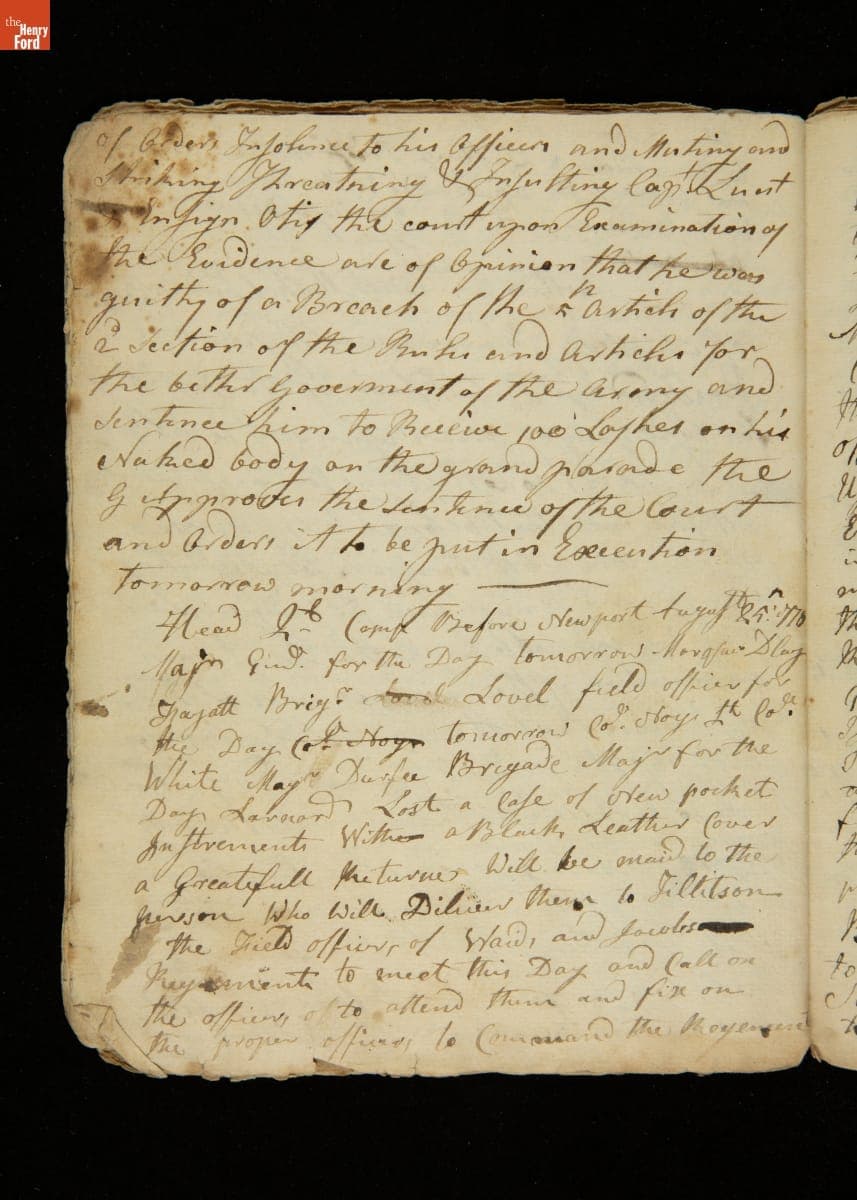 the
Henry
Ford
of Orders Insolence to his Officers and Mutiny and
Striking Threatning & Insulting Capt. Lunt
& Ensign Otis the court upon Examination of
the Evidence are of Opinion that he was
guilty of a Breach of the 5th Article of the
2d Section of the Rules and Articles for
the bether Goverment of the Army and
Sentence him to Receive 100 Lashes on his
Naked body on the grand parade the
G Approves the Sentence of the Court
and Orders it to be put in Execution
tomorrow morning
Head Qrs Camp Before Newport August 25th 1778
Majr Genl. for the Day tomorrow Marques Dlay
Fayatt Brigr. Lovel field officer for
the Day Col. Noys tomorrow Col. Noys Lt Col.
White Majr. Durfee Brigade Majr for the
Day Larnard Lost a Case of New pocket
Instrements With a Black Leather Cover
a Greatefull Returne Will be maid to the
person Who Will Diliver them to Tillitson
the Field officers of Waids and Jacobs
Regements to meet this Day and Call on
the officers of to attend them and fix on
the proper officers to Command the Regement